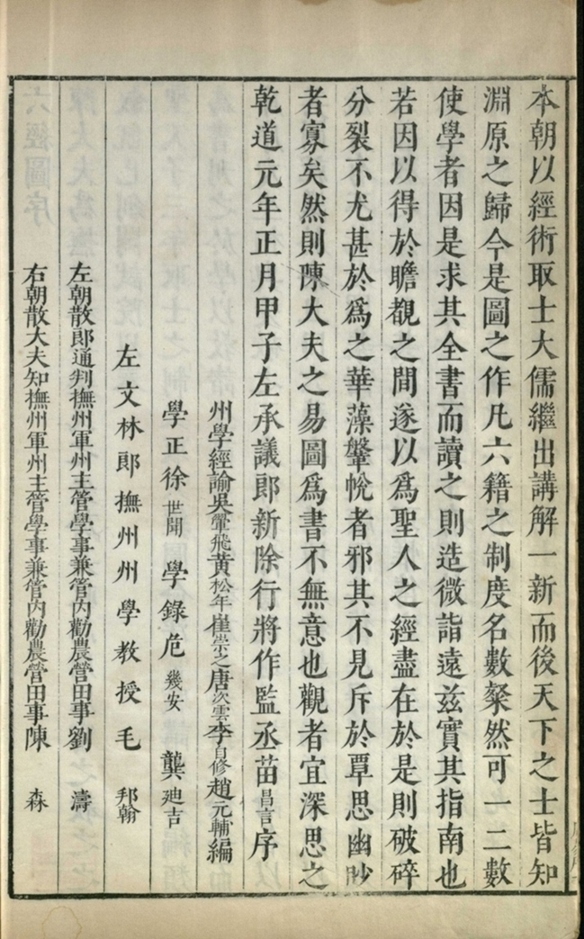 本朝以經術取士大儒繼出講解一新而後天下之士皆知
淵原之歸今是圖之作凡六籍之制度名數粲然可一二數
使學者因是求其全書而讀之則造微詣遠茲實其指南也
若因以得於瞻覩之間遂以爲聖人之經盡在於是則破碎
分裂不尤甚於爲之華藻鞶帨者邪其不見斥於覃思幽眇
者寡矣然則陳大夫之易圖爲書不無意也觀者宜深思之
乾道元年正月甲子左承議郎新除行將作監丞苗昌言序
州學經諭吳翬飛黃松年崔崇之唐次雲李自修趙元輔編
學正徐世聞 學錄危幾安 龔廸吉
左文林郎撫州州學教授毛 邦翰
左朝散郎通判撫州軍州主管學事兼管內勸農營田事劉 濤
右朝散大夫知撫州軍州主管學事兼管內勸農營田事陳 森